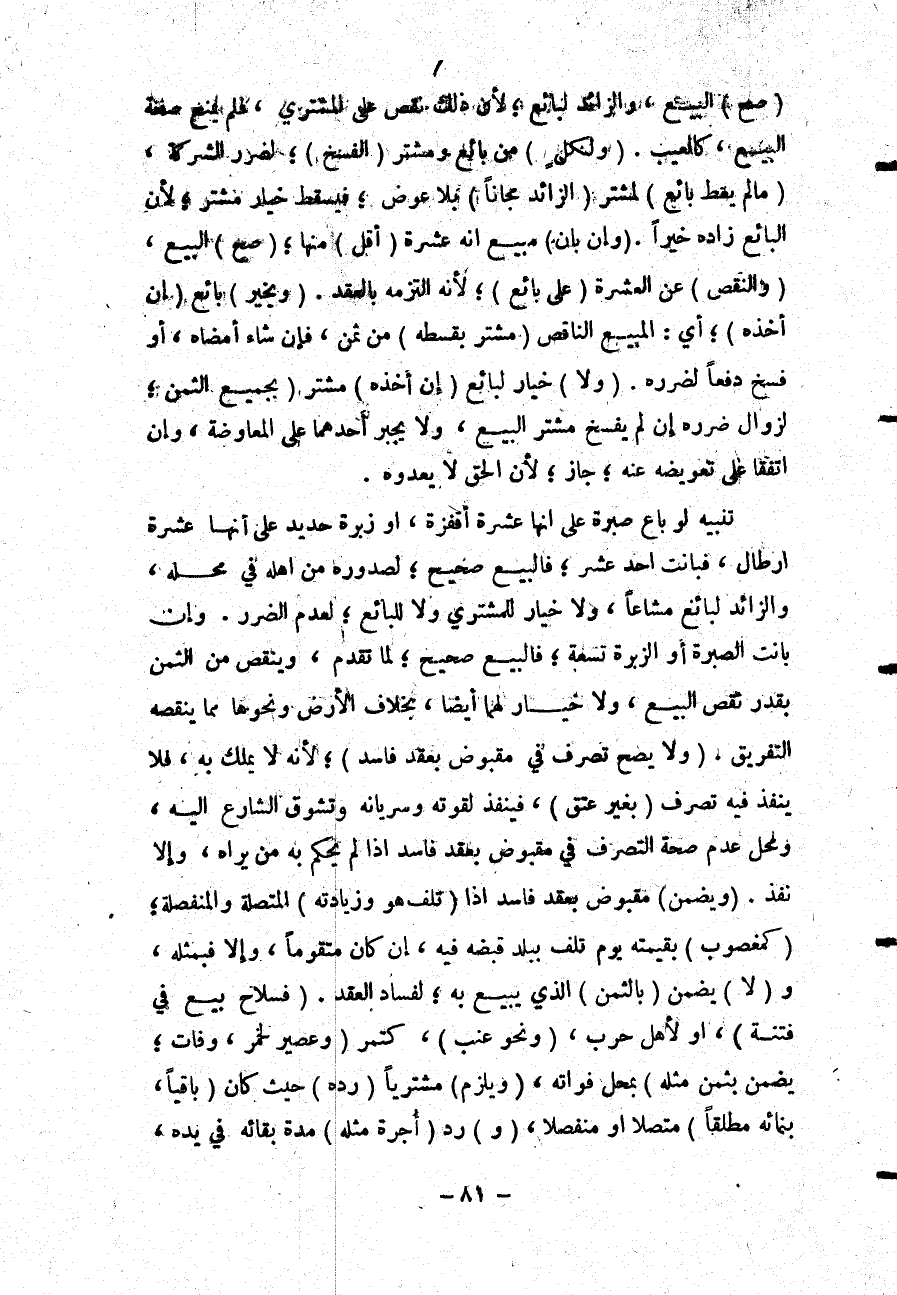 ( صح ) البيـع ، والزائد لبائع ؛ لأن ذلك نقص على المشتري ، فلم يمنع صحة
البيـع ، كالعيب . ( ولكل ) من بائع ومشتر ( الفسخ ) ؛ لضرر الشركة ،
( مالم يعط بائع ) لمشتر ( الزائد مجاناً ) بلا عوض ؛ فيسقط خيار مشتر ؛ لأن
البائع زاده خيراً . ( وان بان ) مبيـع انه عشرة ( أقل ) منها ؛ ( صح ) البيع ،
( والنقص ) عن العشرة ( على بائع ) ؛ لأنه التزمه بالعقد . ( ويخير ) بائع ( إن
أخذه ) ؛ أي : المبيـع الناقص ( مشتر بقسطه ) من ثمن ، فإن شاء أمضاه ، أو
فسخ دفعاً لضرره . ( ولا ) خيار لبائع ( إن أخذه ) مشتر ( بجميـع الثمن ؛
لزوال ضرره إن لم يفسخ مشتر البيـع ، ولا يجبر أحدهما على المعاوضة ، وان
اتفقا على تعويضه عنه ؛ جاز ؛ لأن الحق لا يعدوه .
تنبيه لو باع صبرة على انها عشرة أقفزة ، او زبرة حديد على أنهـا عشرة
ارطال ، فبانت احد عشر ؛ فالبيـع صحيح ؛ لصدوره من اهله في محـله ،
والزائد لبائع مشاعاً ، ولا خيار للمشتري ولا للبائع ؛ لعدم الضرر . وان
بانت الصبرة أو الزبرة تسعة ؛ فالبيـع صحيح ؛ لما تقدم ، وينقص من الثمن
بقدر نقص البيـع ، ولا خيـار لهما أيضا ، بخلاف الأرض ونحوها مما ينقصه
التفريق . ( ولا يصح تصرف في مقبوض بعقد فاسد ) ؛ لأنه لا يملك به ، فلا
ينفذ فيه تصرف ( بغير عتق ) ، فينفذ لقوته وسريانه وتشوق الشارع اليـه ،
ومحل عدم صحة التصرف في مقبوض بعقد فاسد اذا لم يحكم به من يراه ، وإلا
نفذ . ( ويضمن ) مقبوض بعقد فاسد اذا ( تلف هو وزيادته ) المتصلة والمنفصلة ؛
( كمغصوب ) بقيمته يوم تلف ببلد قبضه فيه ، ان كان متقوماً ، وإلا فبمثله ،
و ( لا ) يضمن ( بالثمن ) الذي يبيـع به ؛ لفساد العقد . ( فسلاح بيـع في
فتنـة ) ، او لأهل حرب ، ( ونحو عنب ) ، كتمر ( وعصير لخمر ، وفات ؛
يضمن بثمن مثله ) بمحل فواته ، ( ويلزم ) مشترياً ( رده ) حيث كان ( باقياً ،
بنمائه مطلقاً ) متصلا او منفصلا ، ( و ) رد ( أجرة مثله ) مدة بقائه في يده ،
– ٨١ –